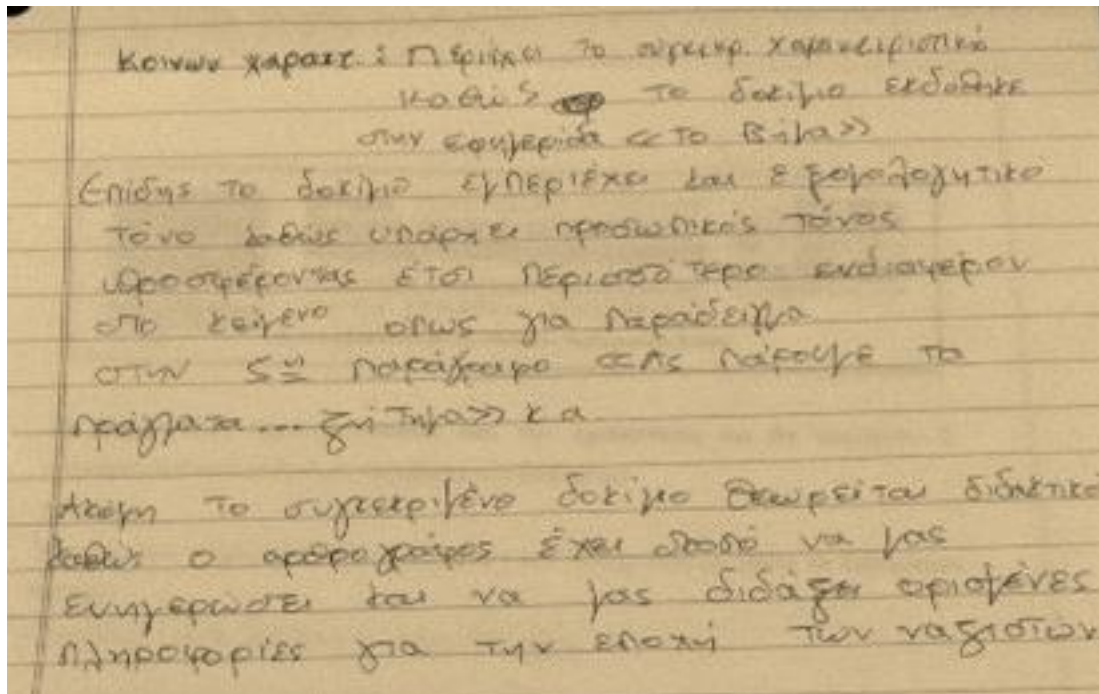 Κοινων χαρακτ. : Περιέχει το συγκεκρ. χαρακτηριστικό
καθώς το δοκίμιο εκδόθηκε
στην εφημερίδα «Το Βήμα»
Επίσης το δοκίμιο εμπεριέχει και εξομολογητικο
τόνο καθώς υπάρχει προσωπικός τόνος
προσφέροντας έτσι περισσότερο ενδιαφέρον
στο κείμενο οπως για παράδειγμα
στην 5η παράγραφο «Ας πάρουμε τα
πράγματα... ζήτημα» κ α
Ακόμη το συγκεκριμένο δοκίμιο θεωρείται διδακτικό
καθώς ο αρθρογράφος έχει σκοπό να μας
ενημερώσει και να μας διδάξει ορισμένες
πληροφορίες για την εποχή των ναζιστών